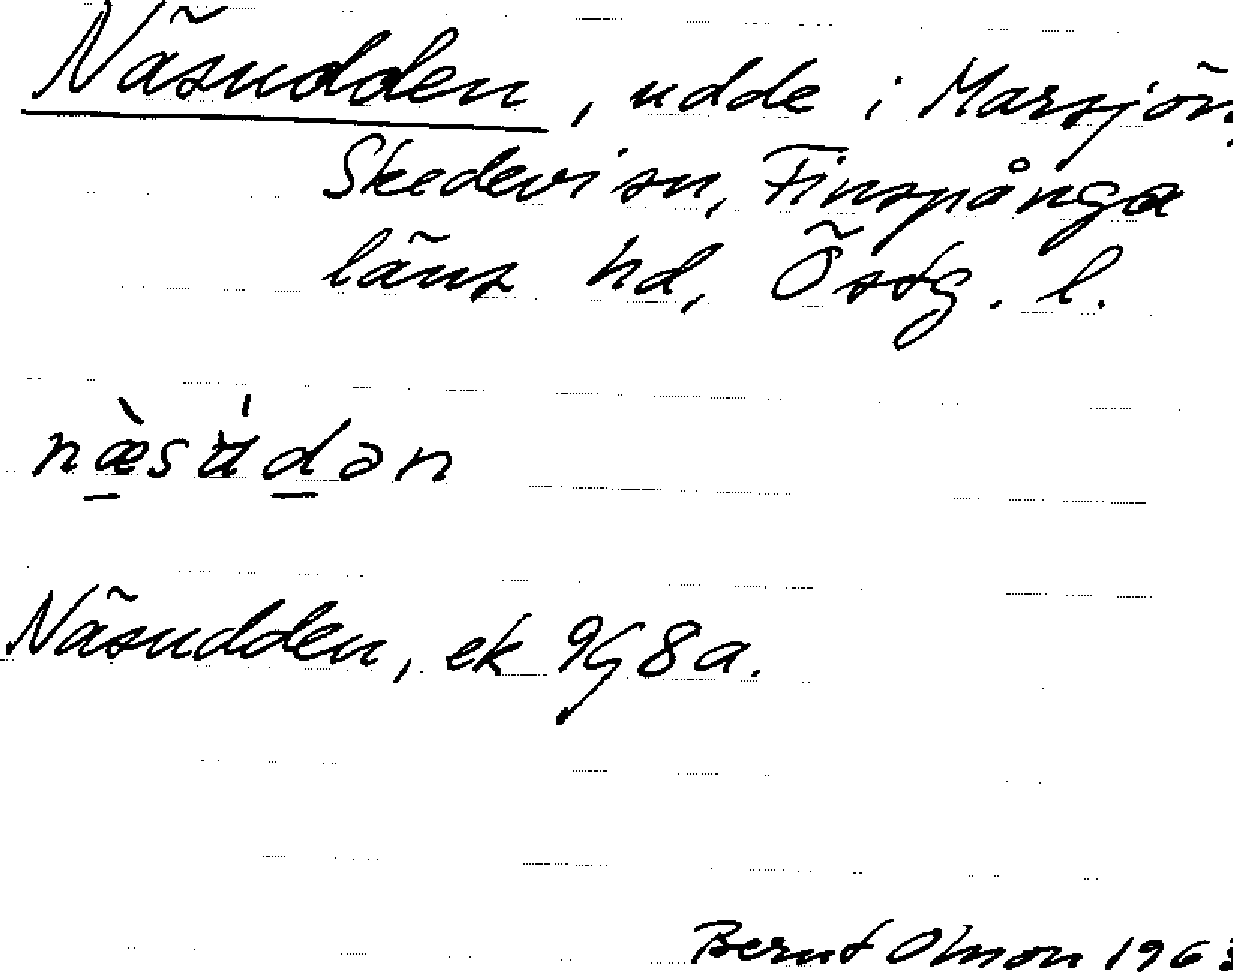 Näsudden, udde i Marsjön,
Skedevi sn, Finspånga
läns hd, Östg. l.
næsųdən
Näsudden, ek 9G8a.
Bernt Olson 1963